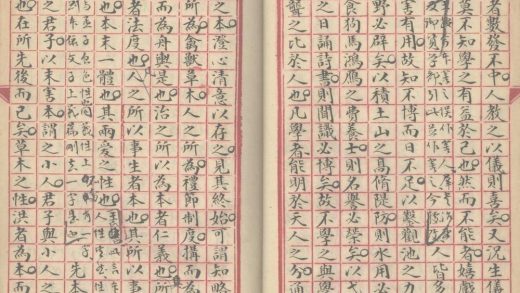 者數發不中人教之以儀則喜矣又況生儀
人皆多
莫不知學之有益於己也然而不能者嬉戲
害有用故知不博而日不足以鑿觀池之力
野必辟矣以積土山之高脩隄防則水用必
食狗馬鴻鴈之費養士則名譽必榮矣以弋
之日誦詩書則聞識必博矣故不學之與學
聾之比於人也凡學者能明於天人之分通
之本澄心清意以存之見其終始可謂知略
所為禽獸草木所為禮節制度構而為
而為舟輿是也治之所以為本者仁義也所
者法度也人之所以事生者本也其所以事
也本末一體也其兩愛之性也
先本
之君子以末害本謂之小人君子與小人
也在所先後而已矣草木之性洪者為本